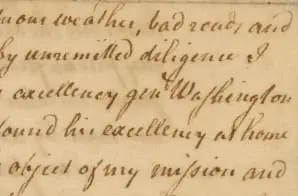 weather, bad roads and
by unremitted diligence I
excellency genl Washington
found his excellency at home
object of my mission and